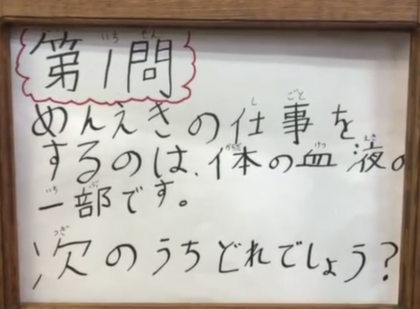 第1問
めんえきの仕事を
するのは、体の血液の
一部です。
次のうちどれでしょう?